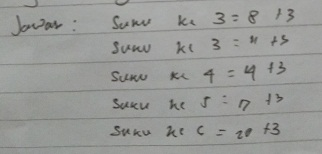 Jawab : Suku ke 3 = 8 +3
Suku ke 3 = 11 +3
Suku ke 4 = 14 +3
Suku ke 5 = 17 +3
Suku ke 6 = 20 +3